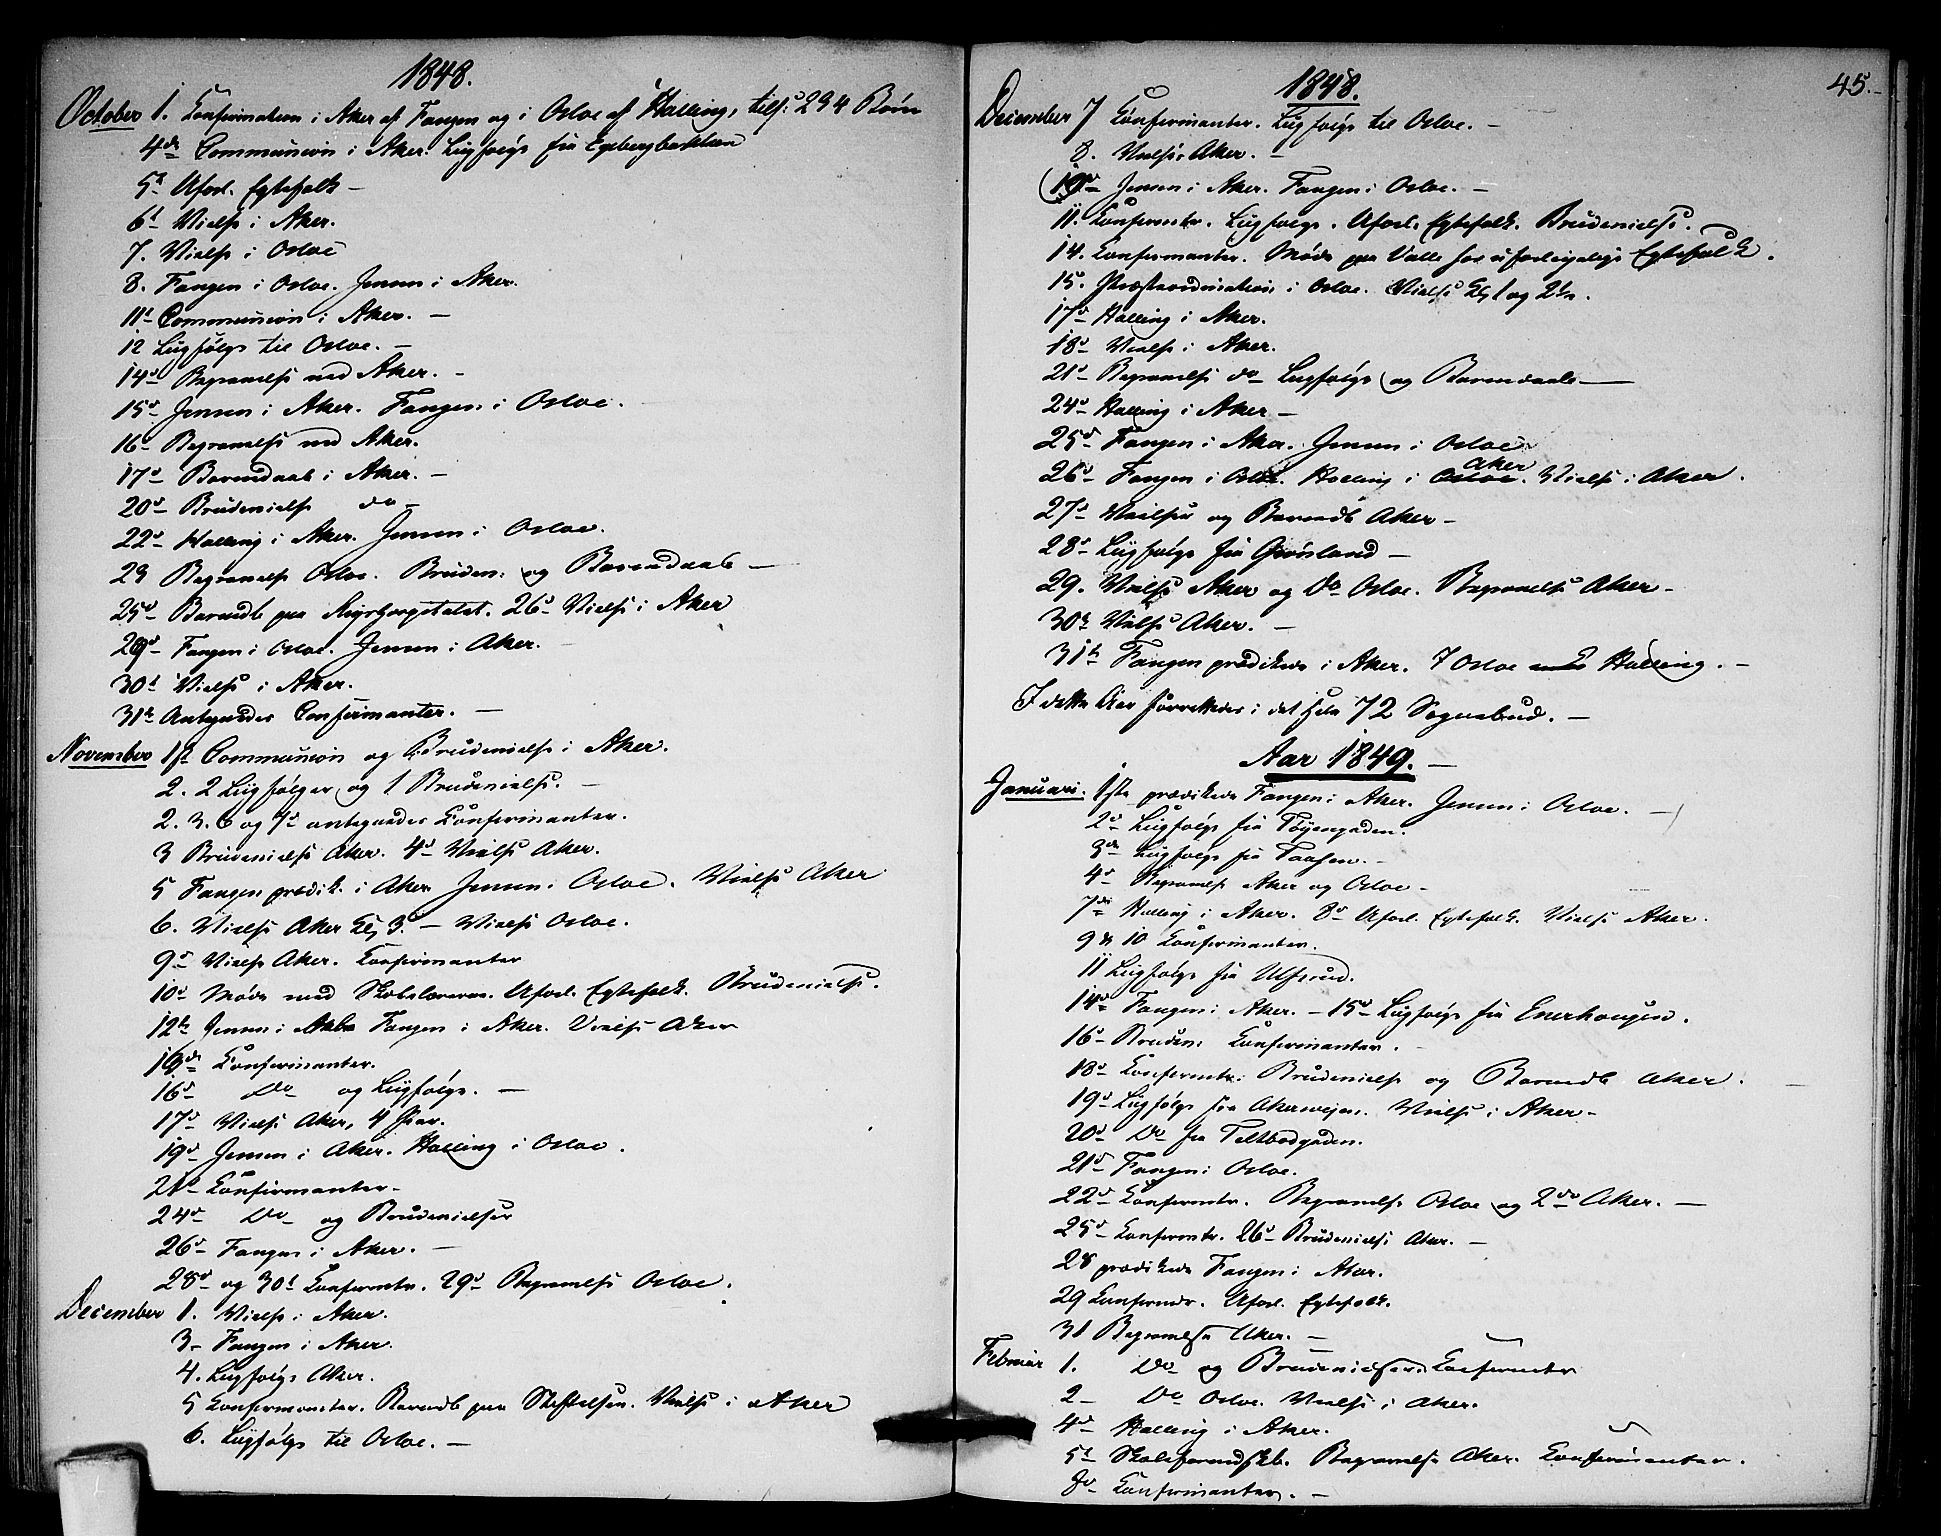 1848.
October 1. Confirmation i Aker af Fangen og i Osloe af Halling, tils: 234 Børn
4de Communion i Aker. Liigfølge fra Egebergbakken
5t Uforl. Egtefolk –
6t Vielse i Aker.
7. Vielse i Osloe
8. Fangen i Osloe. Jensen i Aker.
11t Communion i Aker. –
12 Liigfølge til Osloe. –
14d Begravelse ved Aker. –
15d Jensen i Aker. Fangen i Osloe.
16d Begravelse ved Aker.
17d Barnedaab i Aker. –
20d Brudevielse do –
22d Halling i Aker. Jensen i Osloe.
23 Begravelse Osloe. Bruden: og Barnedaab –
25d Barnedb paa 26d Vielse i Aker
29d Fangen i Osloe. Jensen i Aker.
30t Vielse i Aker.
31te Antegnedes Confirmanter. –
November 1ste Communion og Brudevielse i Aker.
2. 2 Liigfølger og 1 Brudevielse. –
2. 3. 6 og 7d antegnedes Confirmanter.
3 Brudevielse Aker. 4d Vielse Aker.
5 Fangen prædik. i Aker Jensen i Osloe. Vielse Aker
6. Vielse Aker Kl. 3. – Vielse Osloe.
9d Vielse Aker. Confirmanter
10d Møde med Skolelærerne. Uforl. Egtefolk. Brudevielse.
12te Jensen i Fangen i Aker. Vielse Aker
Confirmanter.
16d Do og Liigfølge. –
17d Vielse Aker, 4 Par.
19d Jensen i Aker. Halling i Osloe.
21d Confirmanter –
24d Do og Brudevielser
26d Fangen i Aker. –
28d og 30t Confirmtr. 29d Begravelse Osloe.
December 1. Vielse i Aker.
3 – Fangen i Aker
4. Liigfølge Aker.
5 Confirmanter. Barnedb paa Stiftelsen. Vielse i Aker
6. Liigfølge til Osloe. –
1848. 45.
December 7 Confirmanter. Liigfølge til Osloe. –
8. Vielse Aker. –
10d Jensen i Aker. Fangen i Osloe. –
11. Confirmtr. Liigfølge. Uforl. Egtefolk. Brudevielse.
14. Confirmanter. Møde paa Valle hos uforligelige Egtefolk.
15. Præsteordination i Osloe. Vielse Kl. 1 og 2
17d Halling i Aker.
18d Vielse i Aker.
21d Begravelse do Liigfølge og Barnedaab –
24d Halling i Aker –
25d Fangen i Aker. Jensen i Osloe
26d Fangen i Osloe. Halling i Osloe Aker. Vielse i Aker.
27d Vielser og Barnedb Aker –
28d Liigfølge fra Grønland –
29. Vielse Aker og Do Osloe. Begravelse Aker –
30te Vielse Aker. –
31te Fangen prædikede i Aker. I Osloe Halling. –
I dette Aar forrettedes i det Hele 72 Sognebud. –
Aar 1849. –
Januari. 1ste prædikede Fangen i Aker. Jensen i Osloe. –
2d Liigfølge fra Tøyengaden.
3de Liigfølge fra Taasen. –
4d Begravelse Aker og Osloe –
7de Halling i Aker. 8d Uforl. Egtefolk. Vielse Aker.
9 & 10 Confirmanter.
11 Liigfølge fra Ulfsrud.
14d Fangen i Aker. – 15d Liigfølge fra Enerhougen.
16d Bruden: Confirmanter.
18d Confirmtr: Brudevielse og Barnedb Aker. –
19d Liigfølge fra Akersveien. Vielse i Aker –
20d Do fra Teltbodgaden.
21d Fangen i Osloe.
22d Confirmtr. Begravelse Osloe og 2de Do Aker. –
25d Confirmtr. 26d Brudevielse Aker. –
28 prædikede Fangen i Aker.
29 Confirmtr. Uforl. Egtefolk.
31 Begravelse Aker. –
Februar 1. Do og Brudevielse Confirmtr
2 – Do Osloe. Vielse i Aker.
4d Halling i Aker.
5t Begravelse Aker. Confirmanter.
8d Confirmanter. –